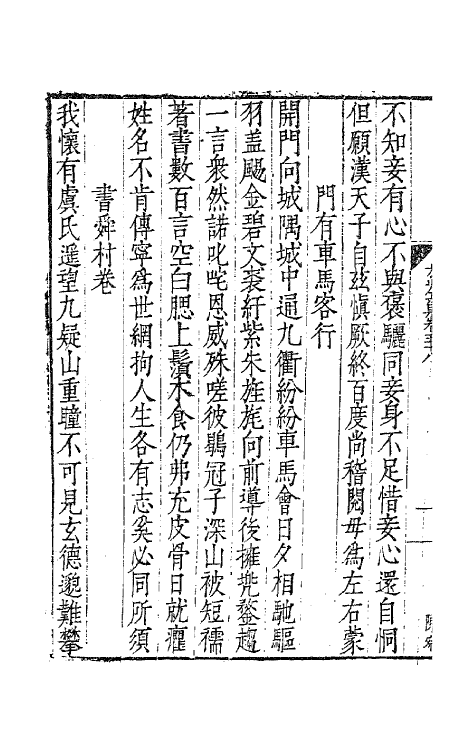 不知妾有心不與褒驪同妾身不足惜妾心還自恫
但願漢天子自玆愼厥終百度尚稽閱毋爲左右蒙
門有車馬客行
開門向城隅城中通九衢紛紛車馬會日夕相馳驅
羽盖颺金碧文裘紆紫朱旌旄向前導後擁兠鍪趨
一言衆然諾叱咤恩威殊嗟彼鶡冠子深山被短襦
著書數百言空白腮上鬚木食仍弗充皮骨日就癯
姓名不肯傳寧爲世網拘人生各有志奚必同所須
書舜村卷
我懷有虞氏遥望九疑山重瞳不可見玄德邈難攀